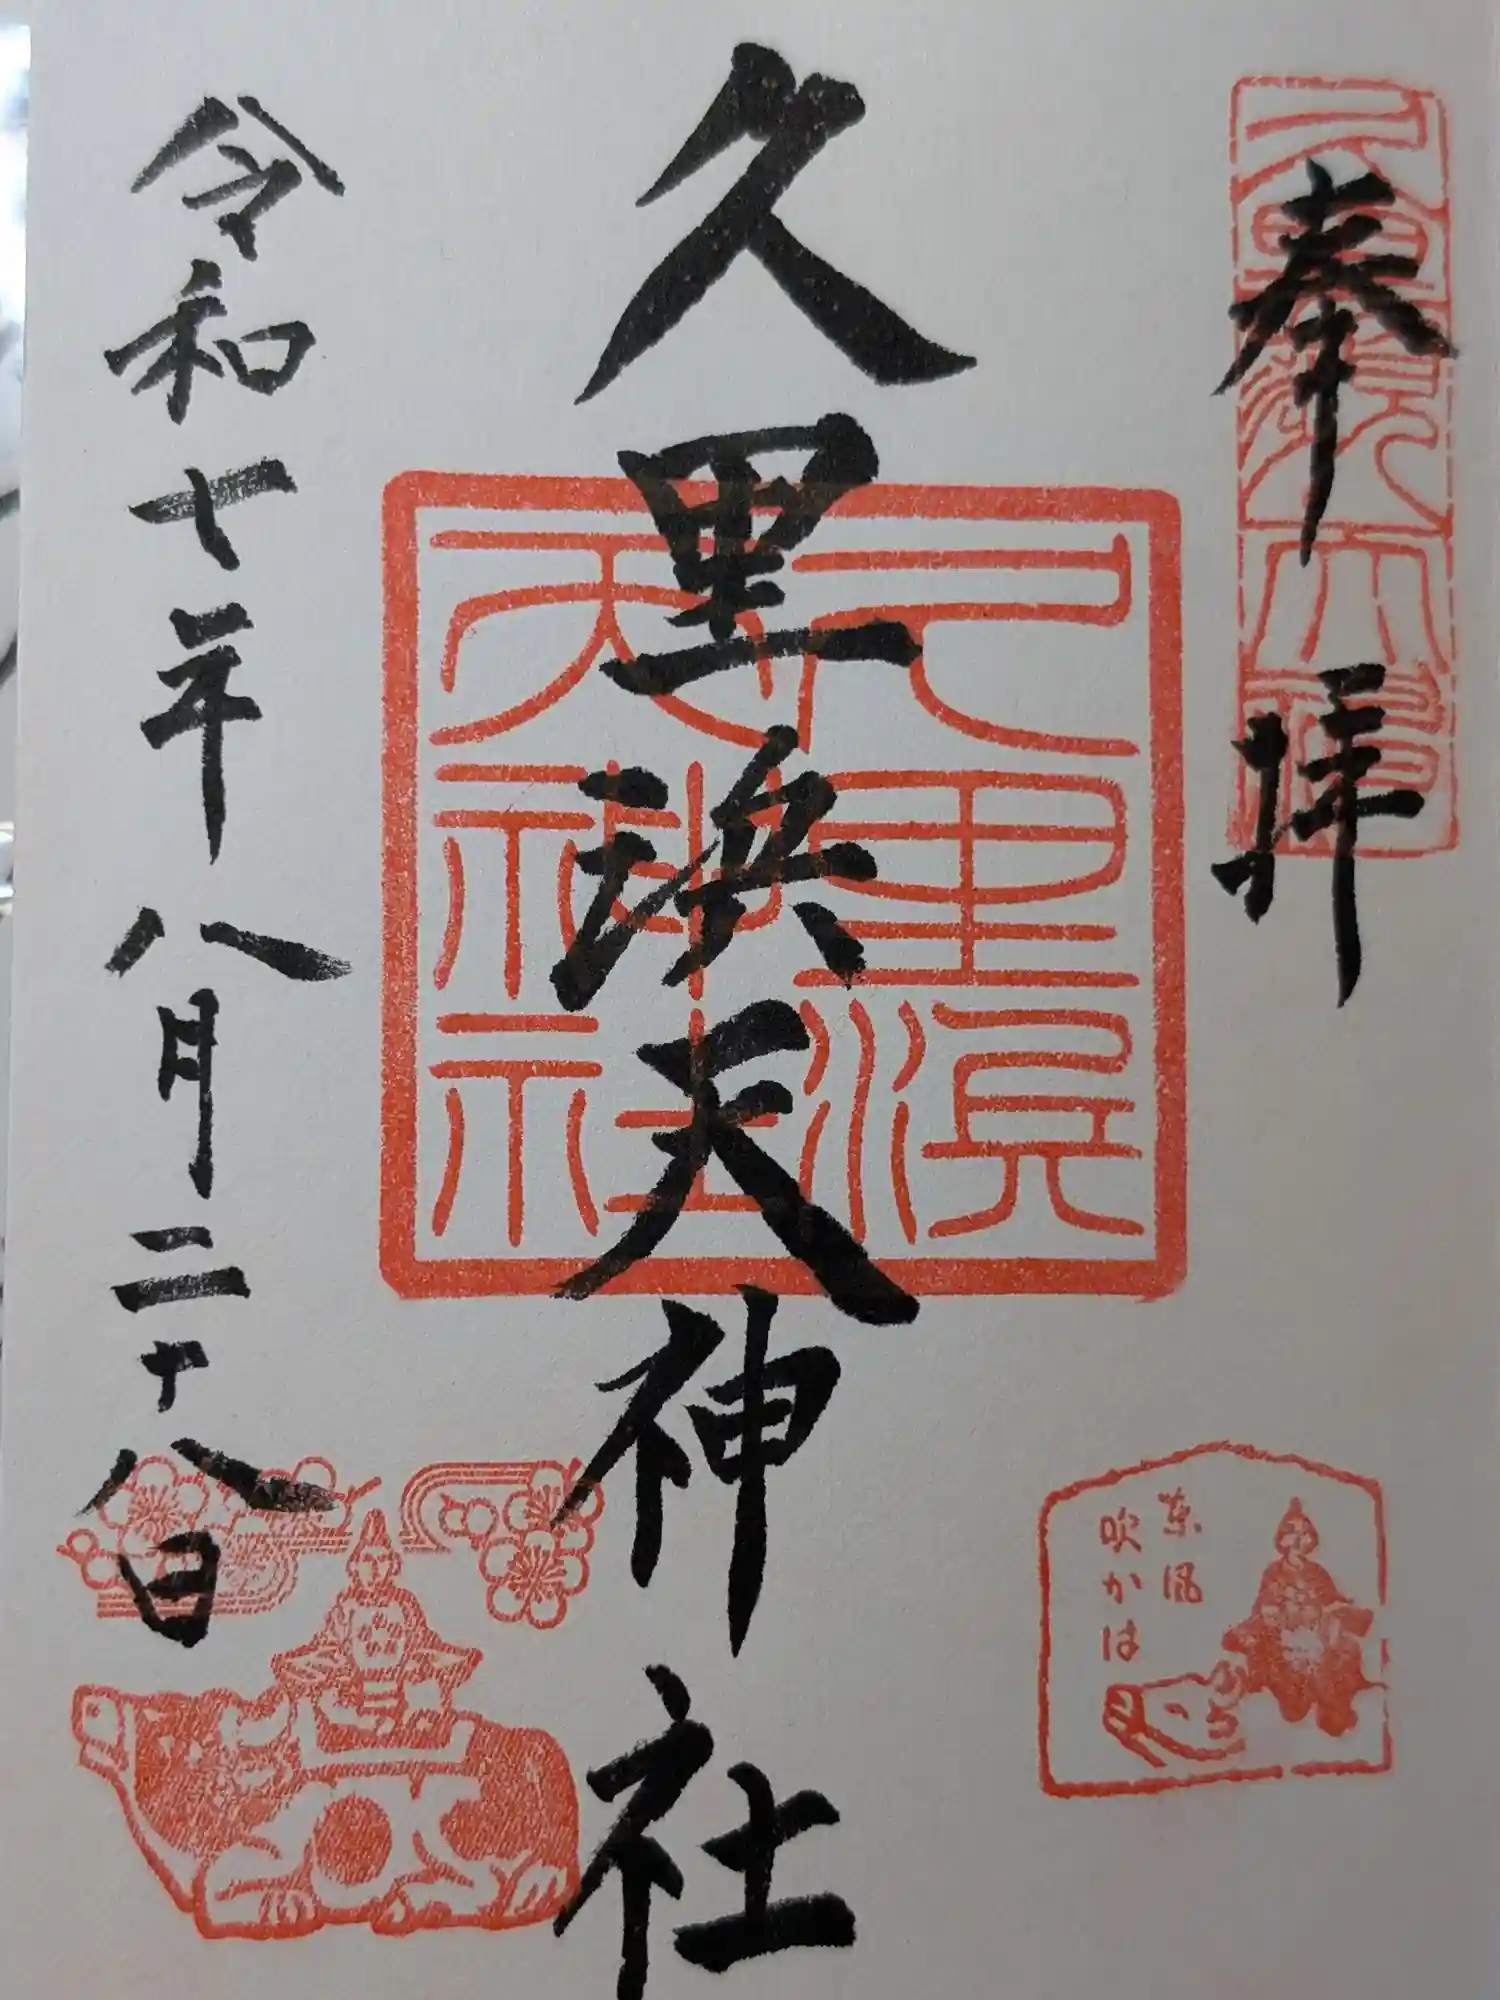 奉拝
久里浜天神社
久里浜天神社
令和七年八月二十八日
東風
吹かは